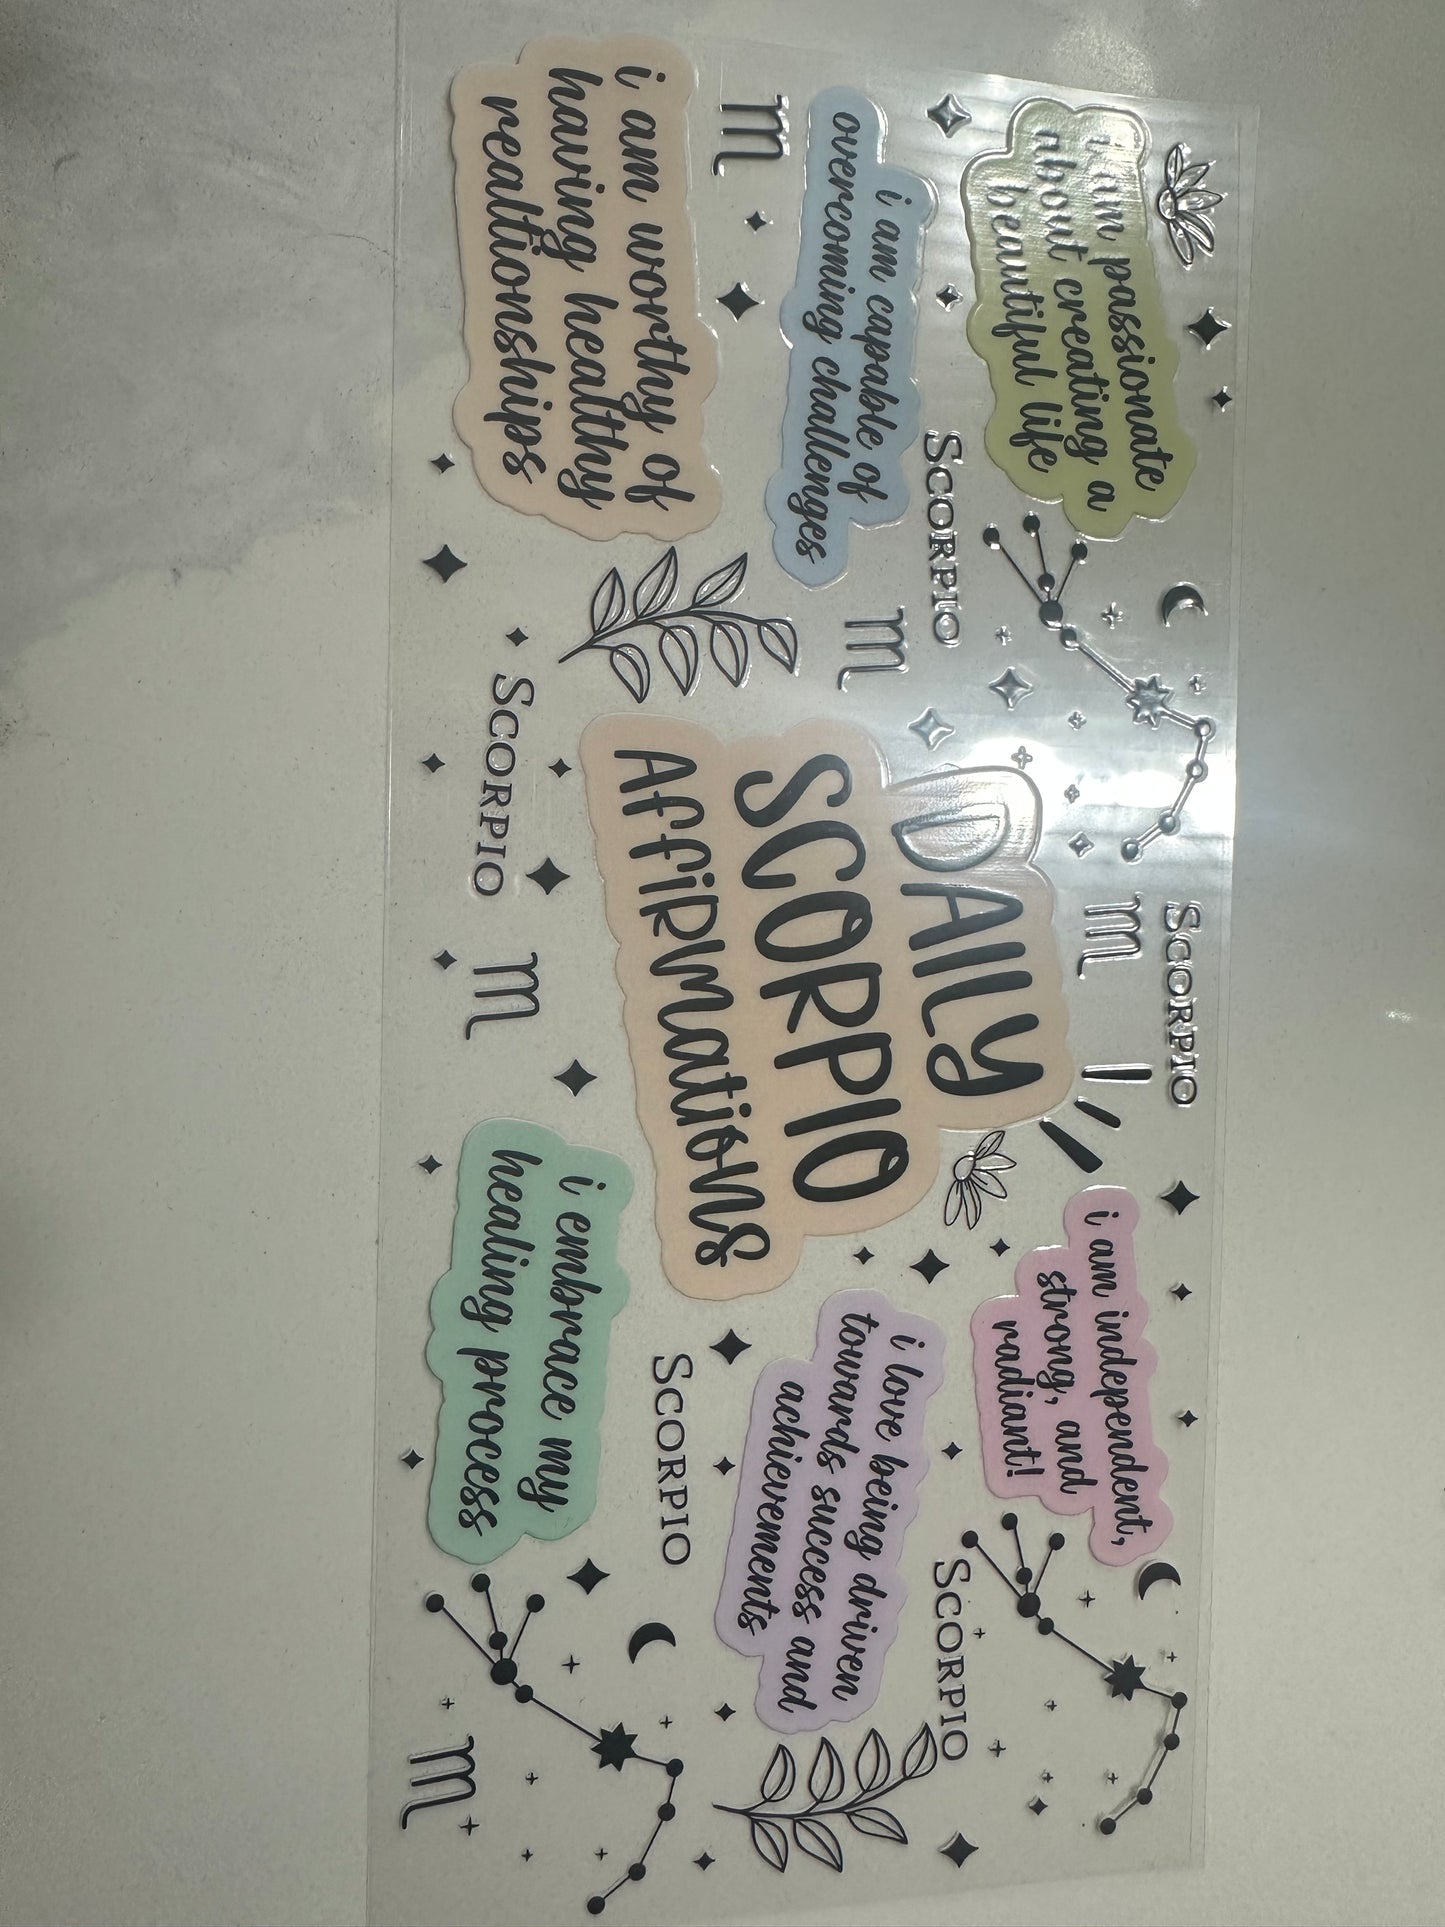 i am passionate
about creating a
beautiful life
SCORPIO
i am capable of
overcoming challenges
i am worthy of
having healthy
realtionships
SCORPIO
DAILY
SCORPIO
AFFiRMations
SCORPIO
i am independent,
strong, and
radiant!
SCORPIO
i love being driven
towards success and
achievements
SCORPIO
i embrace my
healing process